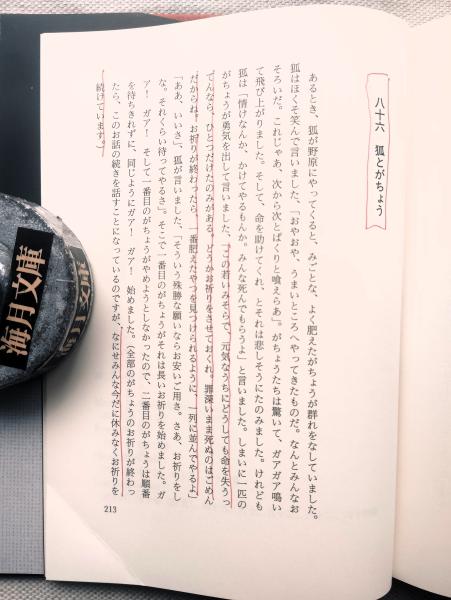 八十六 狐とがちょう
あるとき、狐が野原にやってくると、みごとな、よく肥えたがちょうが群れをなしていました。
狐はほくそ笑んで言いました、「おやおや、うまいところへやってきたものだ。なんとみんなお
そろいだ。これじゃあ、次から次とぱくりと喰えらあ」。がちょうたちは驚いて、ガアガア鳴い
て飛び上がりました。そして、命を助けてくれ、とそれは悲しそうにたのみました。けれども
狐は「情けなんか、かけてやるもんか。みんな死んでもらうよ」と言いました。しまいに一匹の
がちょうが勇気を出して言いました、「この若いみそらで、元気なうちにどうしても命を失うっ
てんなら、ひとつだけたのみがある。どうかお祈りをさせておくれ。罪深いまま死ぬのはごめん
だからね。お祈りが終わったら、一番肥えたやつを見つけられるように、一列に並んでやるよ」
「ああ、いいさ」、狐が言いました、「そういう殊勝な願いならお安いご用さ。さあ、お祈りをし
な。それくらい待ってやるさ」。そこで一番目のがちょうがそれは長いお祈りを始めました。ガ
ア！ ガア！ そして一番目のがちょうがやめようとしなかったので、二番目のがちょうは順番
を待ちきれずに、同じようにガア！ ガア！ 始めました。（全部のがちょうのお祈りが終わっ
たら、このお話の続きを話すことになっているのですが、なにせみんな今だに休みなくお祈りを
続けています。）
213
海月文庫